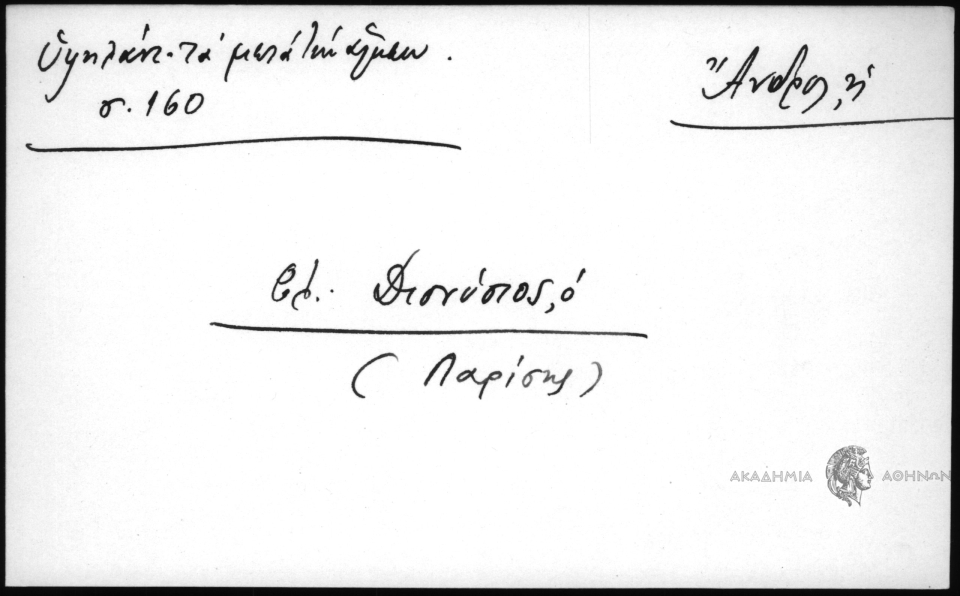 Ὑψηλάντ. τὰ μετὰ τὴν ἅλωσιν.
σ. 160
Ἄνδρος, ἡ
βλ. Διονύσιος, ὁ
(Λαρίσης)
ΑΚΑΔΗΜΙΑ ΑΘΗΝΩΝ